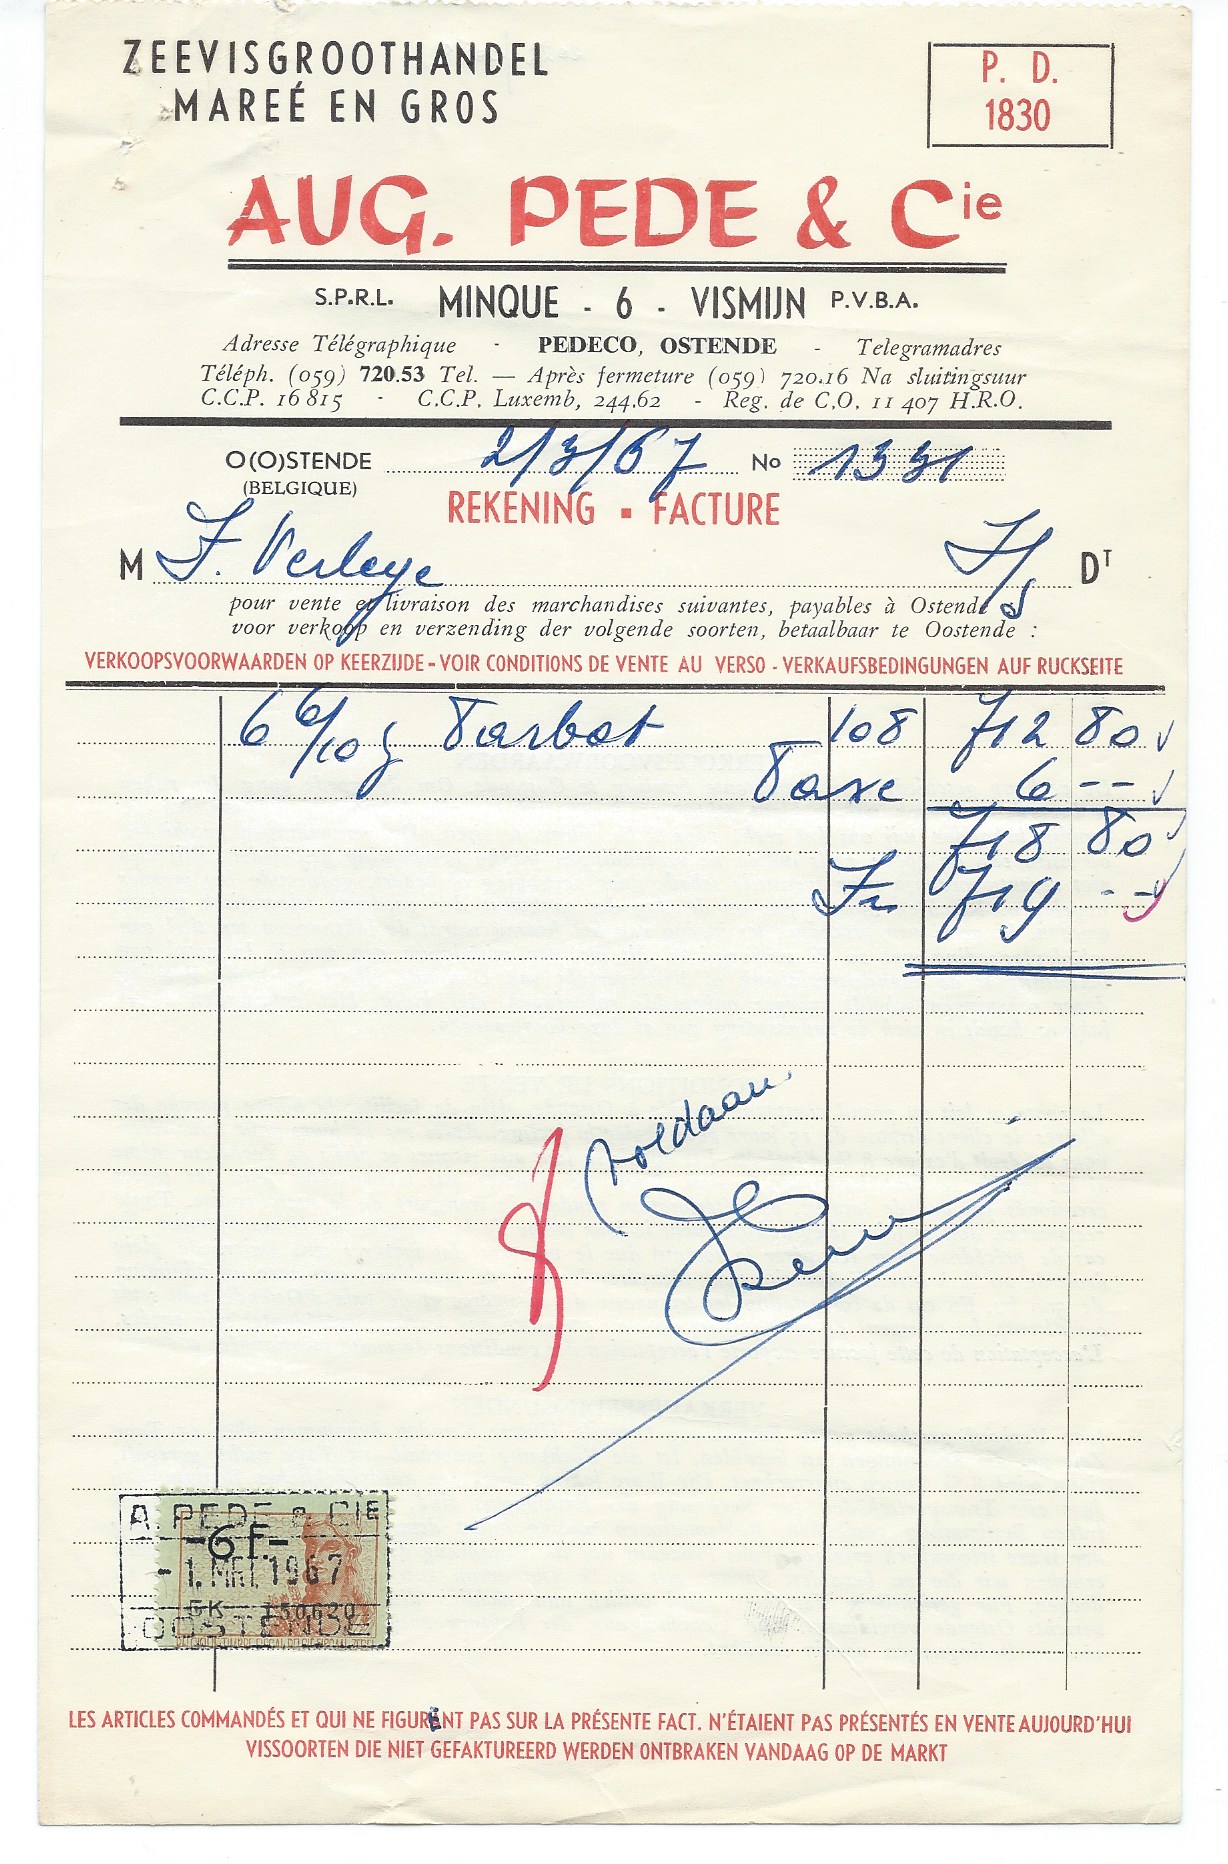 ZEEVISGROOTHANDEL
MAREÉ EN GROS
P. D.
1830
AUG. PEDE & Cie
S.P.R.L. MINQUE - 6 - VISMIJN P.V.B.A.
Adresse Télégraphique - PEDECO, OSTENDE - Telegramadres
Téléph. (059) 720.53 Tel. — Après fermeture (059) 720.16 Na sluitingsuur
C.C.P. 16815 - C.C.P. Luxemb, 244.62 - Reg. de C.O. 11 407 H.R.O.
O(O)STENDE 2/3/67 No 1331
(BELGIQUE)
REKENING - FACTURE
M F. Verleye DT
pour vente et livraison des marchandises suivantes, payables à Ostende
voor verkoop en verzending der volgende soorten, betaalbaar te Oostende :
VERKOOPSVOORWAARDEN OP KEERZIJDE - VOIR CONDITIONS DE VENTE AU VERSO - VERKAUFSBEDINGUNGEN AUF RUCKSEITE
6 6/10 Tarbot 108 712 80
Taxe 6 --
718 80
Fr 719 --
voldaan
A. PEDE & CIE
-6 F.-
-1. MRT. 1967
OOSTENDE
LES ARTICLES COMMANDÉS ET QUI NE FIGURENT PAS SUR LA PRÉSENTE FACT. N'ÉTAIENT PAS PRÉSENTÉS EN VENTE AUJOURD'HUI
VISSOORTEN DIE NIET GEFAKTUREERD WERDEN ONTBRAKEN VANDAAG OP DE MARKT